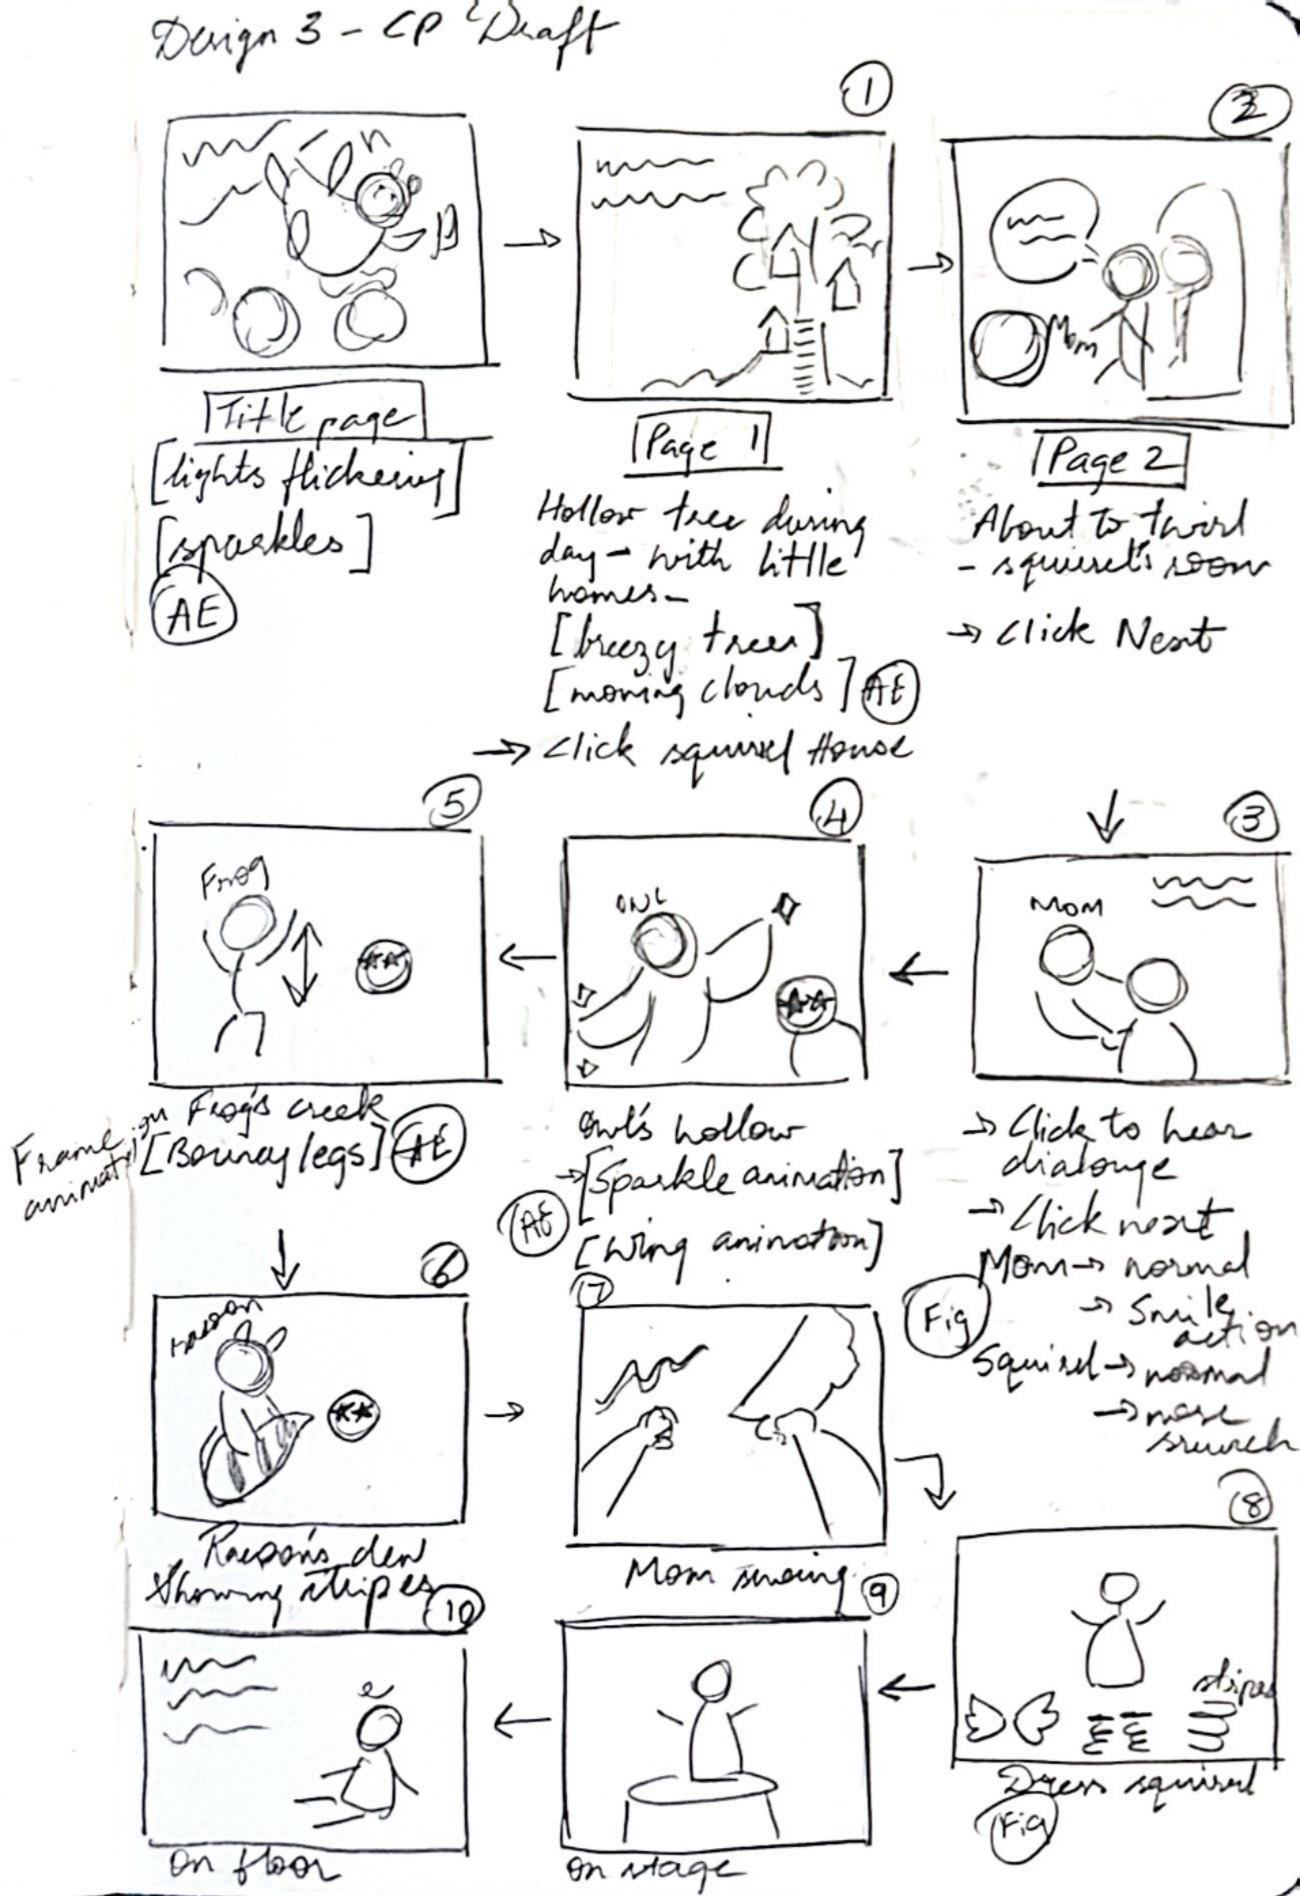 Design 3 - CP Draft
Title page
[lights flickering]
[sparkles]
AE
1
Page 1
Hollow tree during
day - with little
homes -
[breezy trees]
[moving clouds] AE
→ Click squirrel House
2
Mom
Page 2
About to twirl
- squirrel's room
→ Click Next
3
Mom
→ Click to hear
dialouge
→ Click next
Mom → normal
→ Smile
action
Fig
Squirrel → normal
→ nose
4
OWL
Owl's hollow
→ [Sparkle animation]
AE
[wing animation]
5
Frog
Frog's creek
[Bouncy legs] AE
Frame
animation
6
racoon
Racoon's den
showing stripes
7
Mom sewing
8
stripes
Dress squirrel
Fig
9
on stage
10
on floor